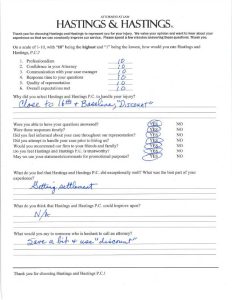 ATTORNEYS AT LAW
HASTINGS & HASTINGS
Thank you for choosing Hastings and Hastings to represent you for your injury. We value your opinion and want to hear about your
experience so that we can constantly improve our service. Please spend a few minutes answering these questions. Thank you.
On a scale of 1-10, with "10" being the highest and "1" being the lowest, how would you rate Hastings and
Hastings, P.C.?
1. Professionalism 10
2. Confidence in your Attorney 10
3. Communication with your case manager 10
4. Response time to your questions 10
5. Quality of representation 10
6. Overall expectations met 10
Why did you select Hastings and Hastings P.C. to handle your injury?
Close to 16th + Baseline, "Discount"
Were you able to have your questions answered? YES NO
Were those responses timely? YES NO
Did you feel informed about your case throughout our representation? YES NO
Did you attempt to handle your case prior to hiring us? YES NO
Would you recommend our firm to your friends and family? YES NO
Do you feel Hastings and Hastings P.C. is trustworthy? YES NO
May we use your statements/comments for promotional purposes? YES NO
What do you feel that Hastings and Hastings P.C. did exceptionally well? What was the best part of your
experience?
Getting settlement
What do you think that Hastings and Hastings P.C. could improve upon?
N/A
What would you say to someone who is hesitant to call an attorney?
Save a bit & use "discount"
Thank you for choosing Hastings and Hastings P.C.!